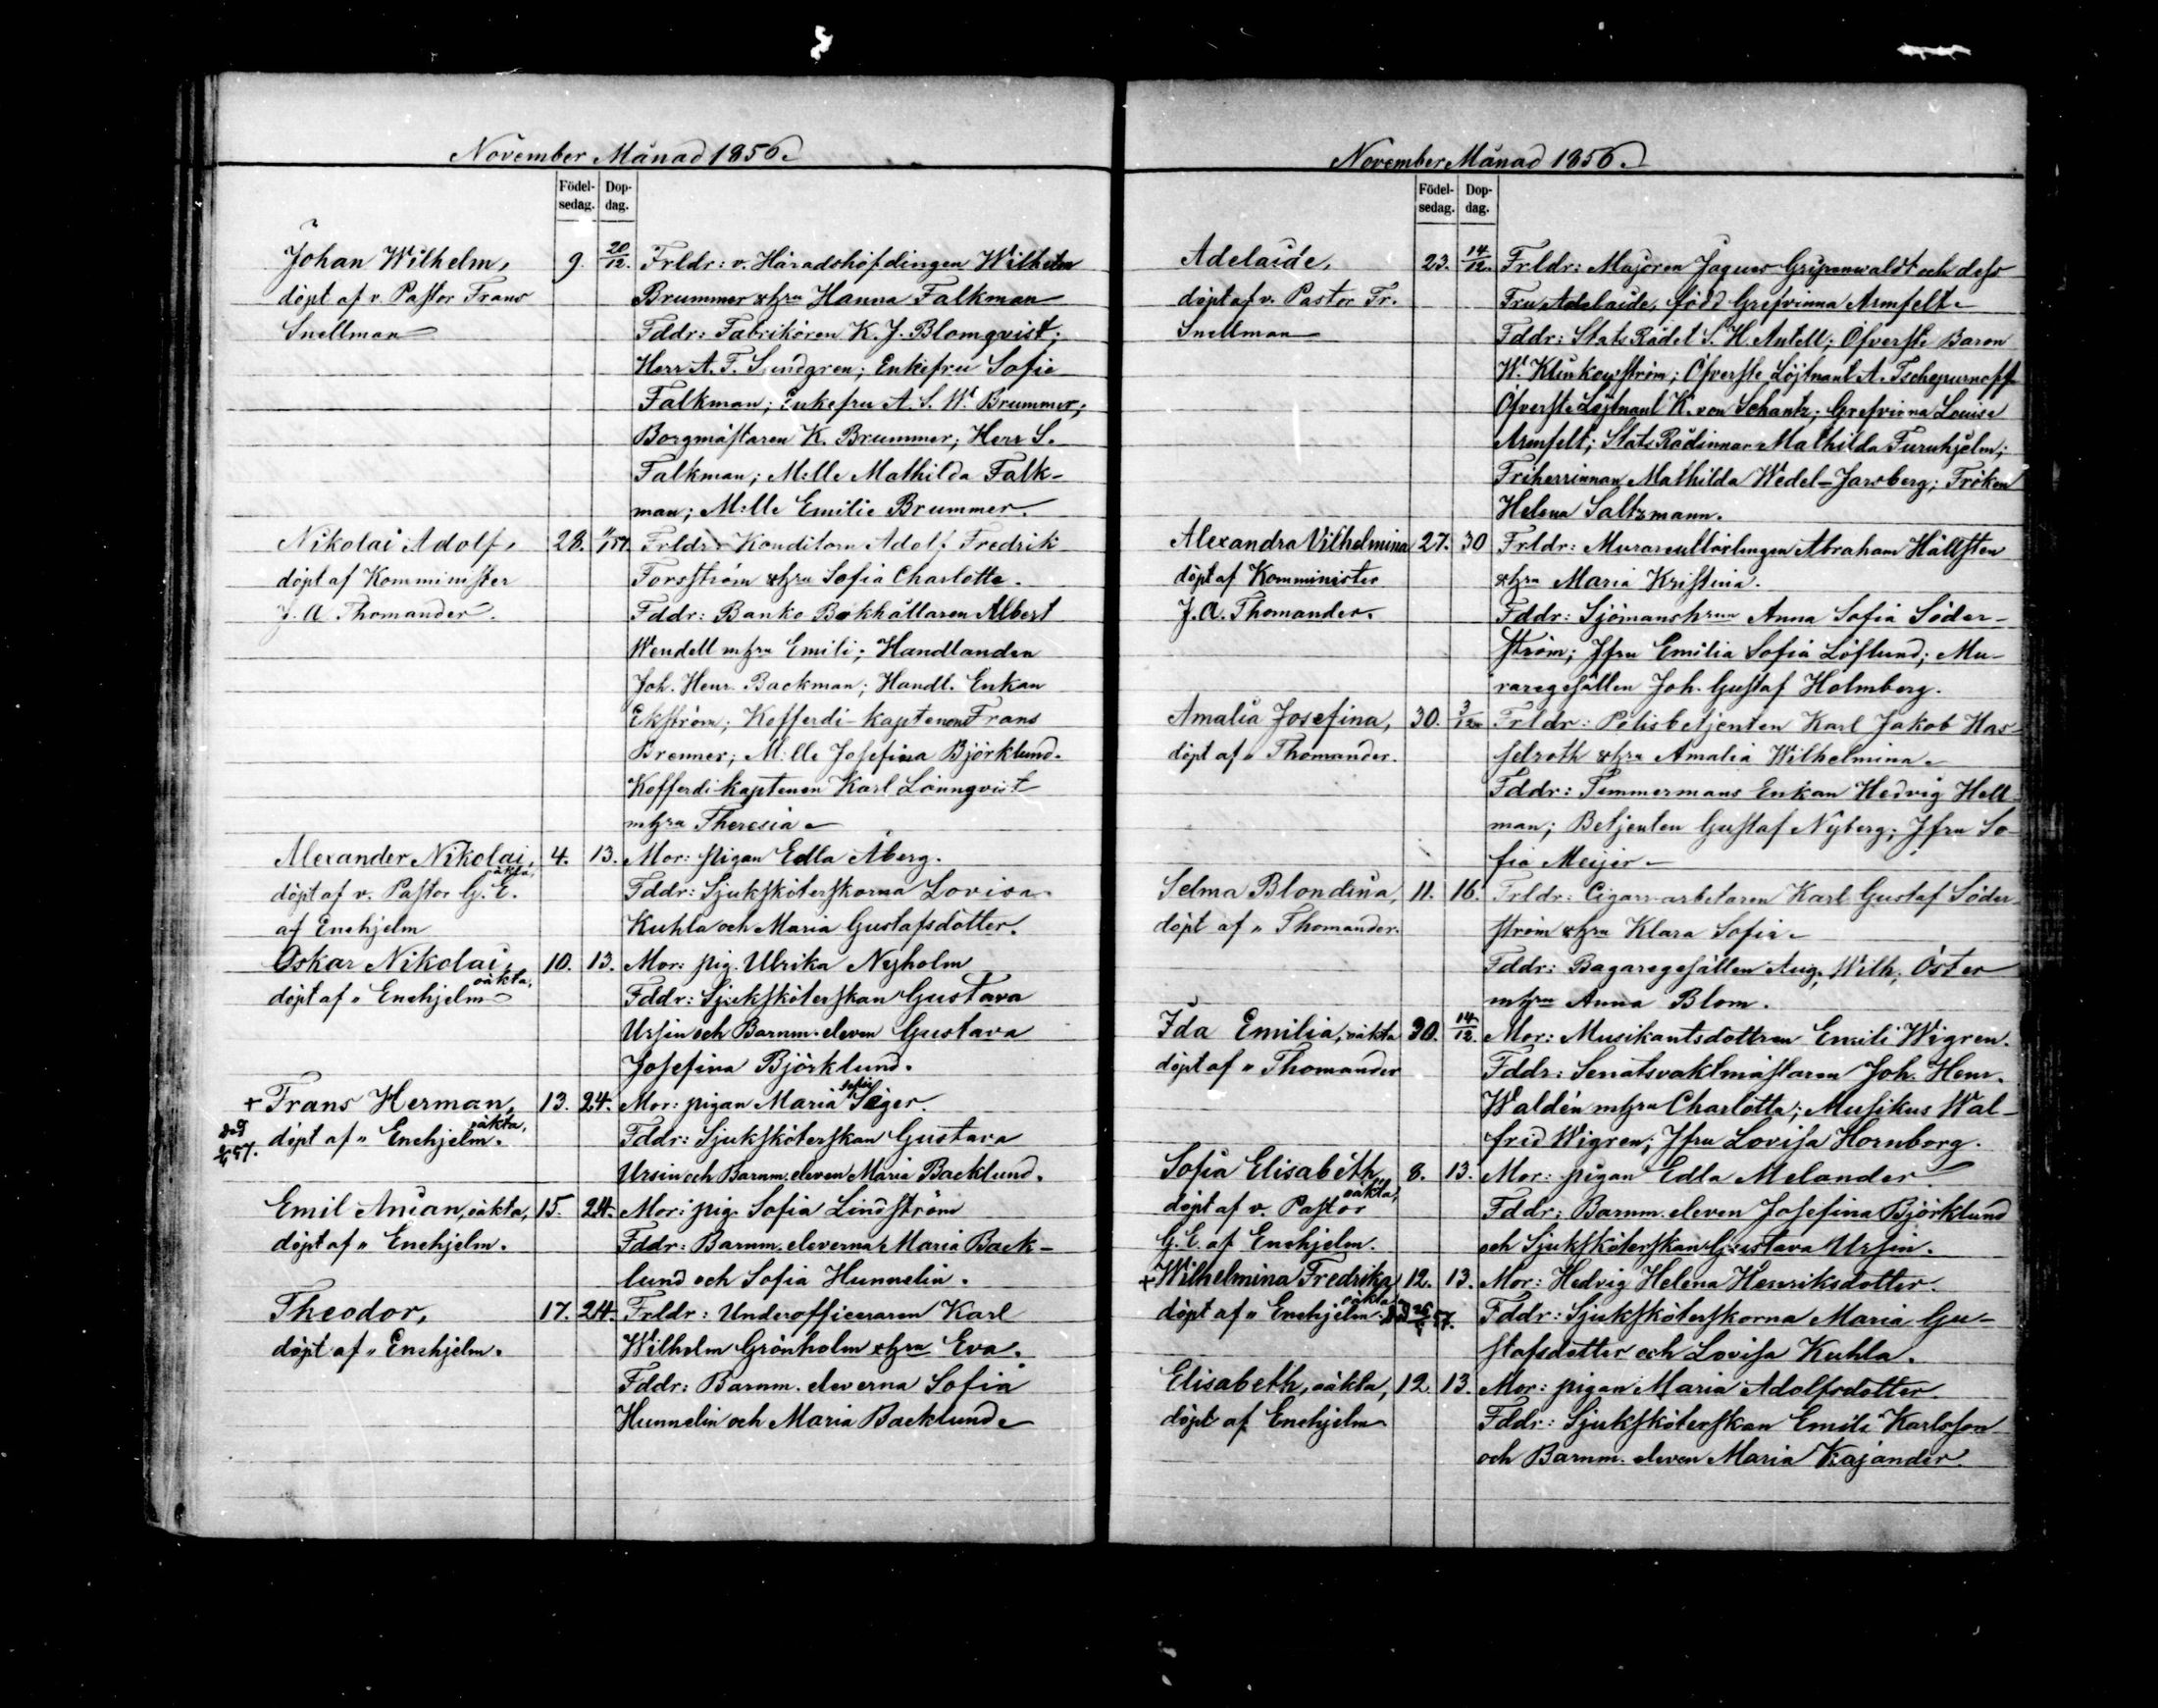 November Månad 1856.
Födel-
sedag.
Dop-
dag.
Johan Wilhelm, 9. 20/12. Frldr: v. Häradshöfdingen Wilhelm
döpt af v. Pastor Frans Brummer o hru Hanna Falkman
Snellman Fddr: Fabrikören K. J. Blomqvist;
Herr A. F. Sundgren; Enkefru Sofie
Falkman; Enkefru A. S. W. Brummer;
Borgmästaren K. Brummer; Herr S.
Falkman; M:lle Mathilda Falk-
man; M:lle Emilie Brummer.
Nikolai Adolf, 28. Frldr: Konditorn Adolf Fredrik
döpt af Komminister Forsström o hru Sofia Charlotta.
J. A. Thomander. Fddr: Banko Bokhållaren Albert
Wendell m hru Emili; Handlanden
Joh. Henr. Backman; Handl. Enkan
Ekström; Kofferdi-kaptenen Frans
Brenner; M:lle Josefina Björklund.
Kofferdi kaptenen Karl Lönnqvist
m hru Theresia
Alexander Nikolai, oäkta, 4. 13. Mor: pigan Edla Åberg.
döpt af v. Pastor G. E. Fddr: Sjuksköterskorna Lovisa
af Enehjelm Kuhla och Maria Gustafsdotter.
Oskar Nikolai, oäkta, 10. 13. Mor: pig. Ulrika Nyholm
döpt af „ Enehjelm Fddr: Sjuksköterskan Gustava
Ursin och Barnm. eleven Gustava
Josefina Björklund.
+ Frans Herman, oäkta, 13. 24. Mor: pigan Maria Sofia Seger.
död 57. döpt af „ Enehjelm. Fddr: Sjuksköterskan Gustava
Ursin och Barnm. eleven Maria Backlund.
Emil Anian, oäkta, 15. 24. Mor: pig. Sofia Lindström
döpt af „ Enehjelm. Fddr: Barnm. eleverna Maria Back-
lund och Sofia Hunnelin.
Theodor, 17. 24. Frldr: Underofficeraren Karl
döpt af „ Enehjelm. Wilhelm Grönholm o hru Eva.
Fddr: Barnm. eleverna Sofia
Hunnelin och Maria Backlund
November Månad 1856.
Födel-
sedag.
Dop-
dag.
Adelaide, 23. 14/12. Frldr: Majoren Jaques Gripenwaldt och dess
döpt af v. Pastor Fr. Fru Adelaide, född Grefvinna Armfelt.
Snellman Fddr: StatsRådet S. H. Antell; Öfverste Baron
W. Klinkowström; Öfverste Löjtnant A. Tschepurnoff
Öfverste Löjtnant K. von Schantz; Grefvinna Louise
Armfelt; StatsRådinnan Mathilda Furuhjelm;
Friherrinnan Mathilda Wedel-Jarsberg; Fröken
Helena Saltzmann.
Alexandra Vilhelmina 27. 30 Frldr: Murarelärlingen Abraham Hällsten
döpt af Komminister o hru Maria Kristina.
J. A. Thomander. Fddr: Sjömansh:run Anna Sofia Söder-
ström; Jfru Emilia Sofia Löflund; Mu-
raregesällen Joh. Gustaf Holmberg.
Amalia Josefina, 30. 3/12 Frldr: Polisbetjenten Karl Jakob Has-
döpt af „ Thomander. selroth o hru Amalia Wilhelmina.
Fddr: Timmermans Enkan Hedvig Hell-
man; Betjenten Gustaf Nyberg; Jfru So-
fia Meijer
Selma Blondina, 11. 16. Frldr: Cigarr-arbetaren Karl Gustaf Söder-
döpt af „ Thomander. ström o hru Klara Sofia
Fddr: Bagaregesällen Aug. Wilh. Öster
m hru Anna Blom.
Ida Emilia, oäkta 30. 14/12. Mor: Musikantsdottren Emili Wigren.
döpt af „ Thomander Fddr: Senatsvaktmästaren Joh. Henr.
Waldén m hru Charlotta; Musikus Wal-
frid Wigren; Jfru Lovisa Hornborg.
Sofia Elisabeth, oäkta, 8. 13. Mor: pigan Edla Melander.
döpt af v. Pastor Fddr: Barnm. eleven Josefina Björklund
G. E. af Enehjelm. och Sjuksköterskan Gustava Ursin.
+ Wilhelmina Fredrika, oäkta 12. 13. Mor: Hedvig Helena Henriksdotter.
döpt af „ Enehjelm. 57. Fddr: Sjuksköterskorna Maria Gu-
stafsdotter och Lovisa Kuhla.
Elisabeth, oäkta, 12. 13. Mor: pigan Maria Adolfsdotter.
döpt af Enehjelm Fddr: Sjuksköterskan Emili Karlsson
och Barnm. eleven Maria Kajander.